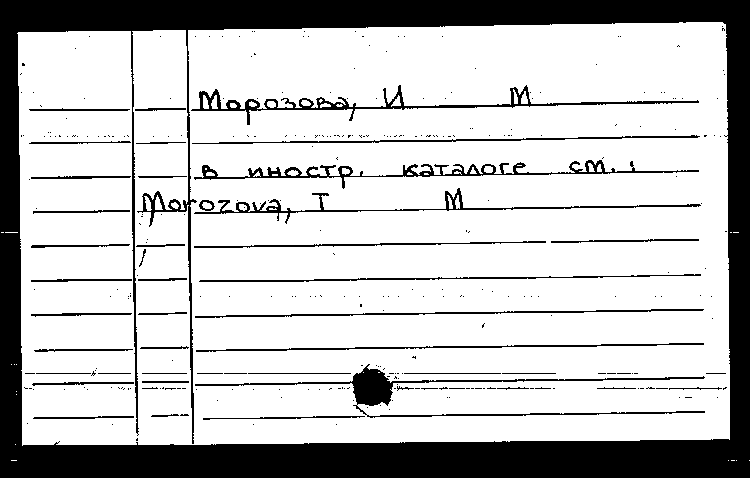 Морозова, И М
в иностр. каталоге см.:
Morozova, I M